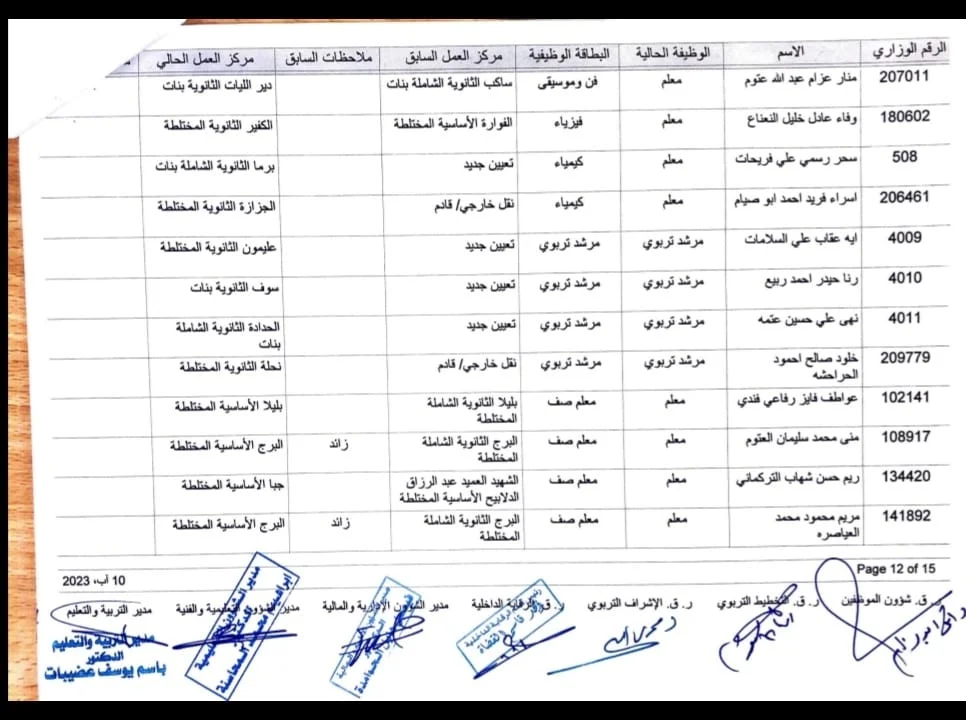 الرقم الوزاري الاسم الوظيفة الحالية البطاقة الوظيفية مركز العمل السابق ملاحظات السابق مركز العمل الحالي
207011 منار عزام عبد الله عتوم معلم فن وموسيقى ساكب الثانوية الشاملة بنات دير الليات الثانوية بنات
180602 وفاء عادل خليل النعناع معلم فيزياء الفوارة الأساسية المختلطة الكفير الثانوية المختلطة
508 سحر رسمي علي فريحات معلم كيمياء تعيين جديد برما الثانوية الشاملة بنات
206461 اسراء فريد احمد ابو صيام معلم كيمياء نقل خارجي/ قادم الجزازة الثانوية المختلطة
4009 ايه عقاب علي السلامات مرشد تربوي مرشد تربوي تعيين جديد عليمون الثانوية المختلطة
4010 رنا حيدر احمد ربيع مرشد تربوي مرشد تربوي تعيين جديد سوف الثانوية بنات
4011 نهى علي حسين عتمه مرشد تربوي مرشد تربوي تعيين جديد الحدادة الثانوية الشاملة
بنات
209779 خلود صالح احمود مرشد تربوي مرشد تربوي نقل خارجي/ قادم نحلة الثانوية المختلطة
الحراحشه
102141 عواطف فايز رفاعي فندي معلم معلم صف بليلا الثانوية الشاملة بليلا الأساسية المختلطة
المختلطة
108917 منى محمد سليمان العتوم معلم معلم صف البرج الثانوية الشاملة زائد البرج الأساسية المختلطة
المختلطة
134420 ريم حسن شهاب التركماني معلم معلم صف الشهيد العميد عبد الرزاق جبا الأساسية المختلطة
الدلابيح الأساسية المختلطة
141892 مريم محمود محمد معلم معلم صف البرج الثانوية الشاملة زائد البرج الأساسية المختلطة
العياصره المختلطة
Page 12 of 15 10 آب، 2023
ر. ق. شؤون الموظفين ر. ق. التخطيط التربوي ر. ق. الإشراف التربوي ر. ق. الرقابة الداخلية مدير الشؤون الإدارية والمالية مدير الشؤون التعليمية والفنية مدير التربية والتعليم
مدير التربية والتعليم
الدكتور
باسم يوسف عضيبات